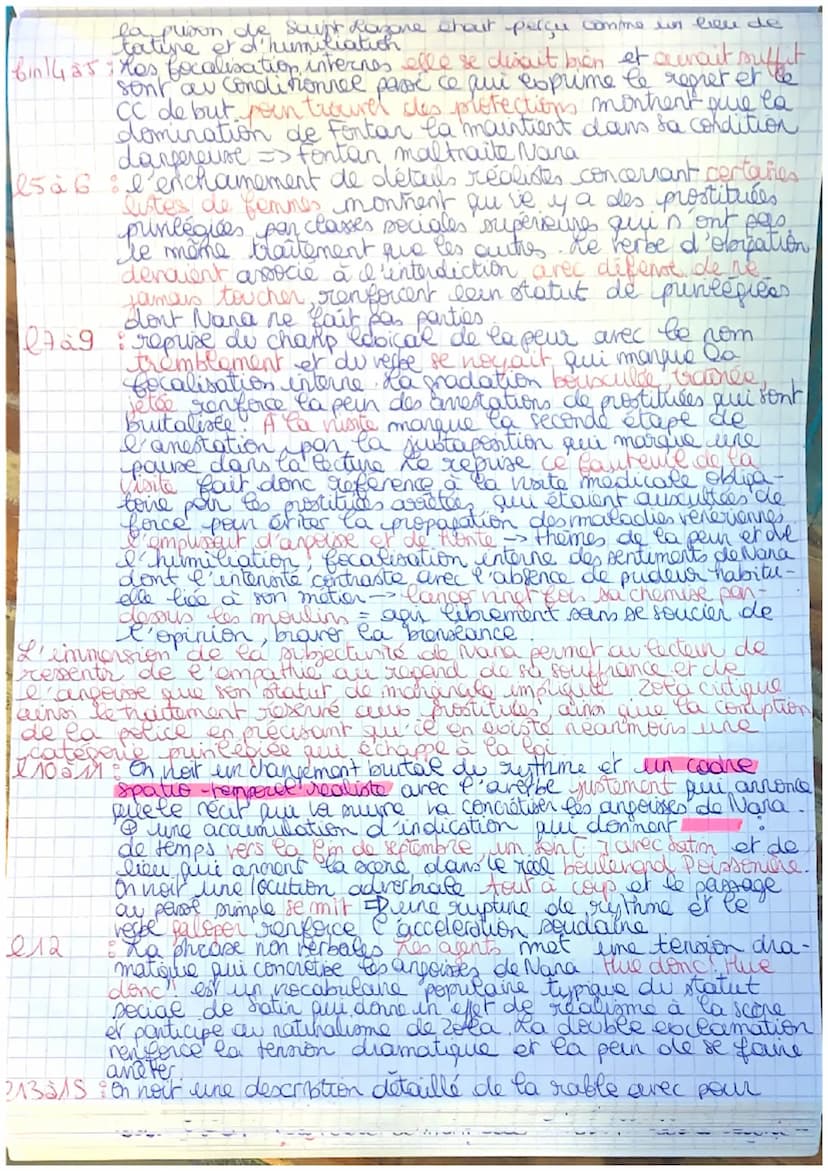 la prison de Saint Lazare était perçu comme un lieu de
torture et d'humiliation
fin l4 à 5 : Les focalisation internes elle se disait bien et aurait suffit
sont au conditionnel passé ce qui exprime le regret et le
CC de but pour trouver des protections montrent que la
domination de Fontan la maintient dans sa condition
dangereuse => Fontan maltraite Nana
l5 à 6 : l'enchainement de détails réalistes concernant certaines
listes de femmes montrent qu'il y a des prostituées
privilégiées par classes sociales supérieures qui n'ont pas
le même traitement que les autres. Le verbe d'obligation
devaient associé à l'interdiction avec défense de ne
jamais toucher, renforcent leur statut de privilégiées
dont Nana ne fait pas parties.
l7 à 9 : reprise du champ lexical de la peur avec le nom
tremblement et du verbe se noyait qui marque la
focalisation interne. La gradation bousculée, trainée,
jetée renforce la peur des arrestations de prostituées qui sont
brutalisée. A la visite marque la seconde étape de
l'arrestation, par la juxtaposition qui marque une
pause dans la lecture. Le reprise ce fauteuil de la
visite fait donc référence à la visite médicale obliga-
toire pour les prostituées arrêtées, qui étaient auscultées de
force pour éviter la propagation des maladies vénériennes
l'emplissait d'angoisse et de honte -> thèmes de la peur et de
l'humiliation, focalisation interne des sentiments de Nana
dont l'intensité contraste avec l'absence de pudeur habitu-
elle liée à son métier -> lancer vingt fois sa chemise par-
dessus les moulins = agir librement sans se soucier de
l'opinion, braver la bienséance.
L'immersion de la subjectivité de Nana permet au lecteur de
ressentir de l'empathie au regard de sa souffrance et de
l'angoisse que son statut de marginale implique. Zola critique
ainsi le traitement réservé aux prostituées ainsi que la corruption
de la police en précisant qu'il en existe néanmoins une
catégorie privilégiée qui échappe à la loi.
l10 à 11 : On voit un changement brutal du rythme et un cadre
spatio-temporel réaliste avec l'averbe justement qui annonce
que le récit qui va suivre va concrétiser les angoisses de Nana.
une accumulation d'indication qui donnent :
de temps vers la fin de septembre, un soir [ ] avec Satin et de
lieu qui ancrent la scène dans le réel boulevard Poissonière.
On voit une locution adverbiale tout à coup et le passage
au passé simple se mit => une rupture de rythme et le
verbe galoper renforce l'accélération soudaine
l12 : La phrase non verbales Les agents met une tension dra-
matique qui concrétise les angoisses de Nana. "Hue donc! Hue
donc" est un vocabulaire populaire typique du statut
social de Satin qui donne un effet de réalisme à la scène
et participe au naturalisme de Zola. La double exclamation
renforce la tension dramatique et la peur de se faire
arrêter.
l13 à 15 : On voit une description détaillé de la rafle avec pour